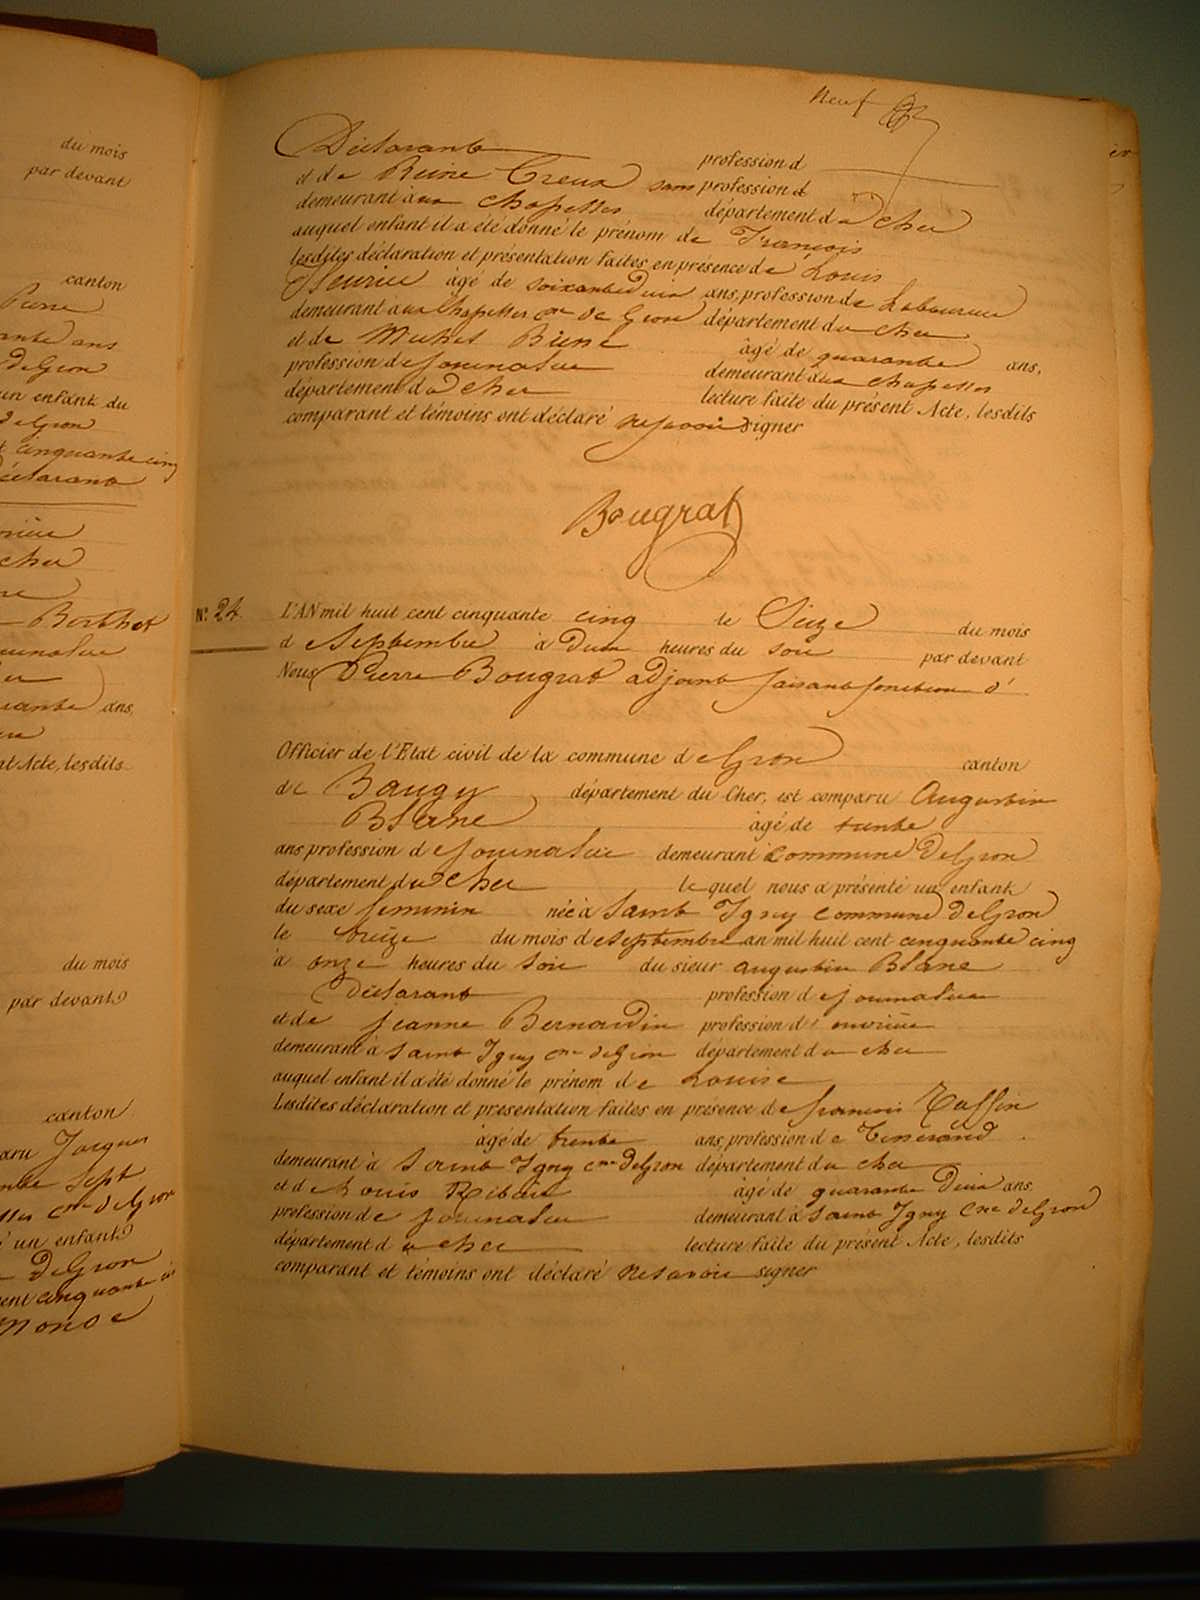 du mois
par devant
canton
Pierre
ante ans
de Gron
un enfant du
de Gron
cinquante cinq
Déclarant
cher
Berthet
journalier
ans,
et Acte, lesdits
du mois
par devant
canton
Jacques
sept
cne de Gron
un enfant
de Gron
cent cinquante
Neuf
Déclarant profession d
et de Reine Creux sans profession d
demeurant à aux Chapelles département du cher
auquel enfant il a été donné le prénom de François
lesdites déclaration et présentation faites en présence de Louis
Fleurier âgé de soixante deux ans, profession de Laboureur
demeurant à aux Chapelles cne de Gron département du cher
et de Michel âgé de quarante ans,
profession de journalier demeurant à aux chapelles
département du cher lecture faite du présent Acte, lesdits
comparant et témoins ont déclaré ne savoir signer
Bougrat
N° 24 L'AN mil huit cent cinquante cinq le Seize du mois
de Septembre à deux heures du soir par devant
Nous Pierre Bougrat adjoint faisant fonction d'
Officier de l'Etat civil de la commune de Gron canton
de Baugy département du Cher, est comparu Augustin
Blanc âgé de trente
ans profession de journalier demeurant commune de Gron
département du Cher lequel nous a présenté un enfant
du sexe féminin née à Saint Igny commune de Gron
le treize du mois de Septembre an mil huit cent cinquante cinq
à onze heures du soir du sieur augustin Blanc
Déclarant profession de journalier
et de jeanne Bernardin profession d' ouvrière
demeurant à Saint Igny cne de Gron département du cher
auquel enfant il a été donné le prénom de Louise
Lesdites déclaration et présentation faites en présence de françois Taffin
âgé de trente ans, profession de Tisserand
demeurant à Saint Igny cne de Gron département du cher
et de Louis Ribain âgé de quarante deux ans
profession de journalier demeurant à Saint Igny cne de Gron
département du cher lecture faite du présent Acte, lesdits
comparant et témoins ont déclaré ne savoir signer